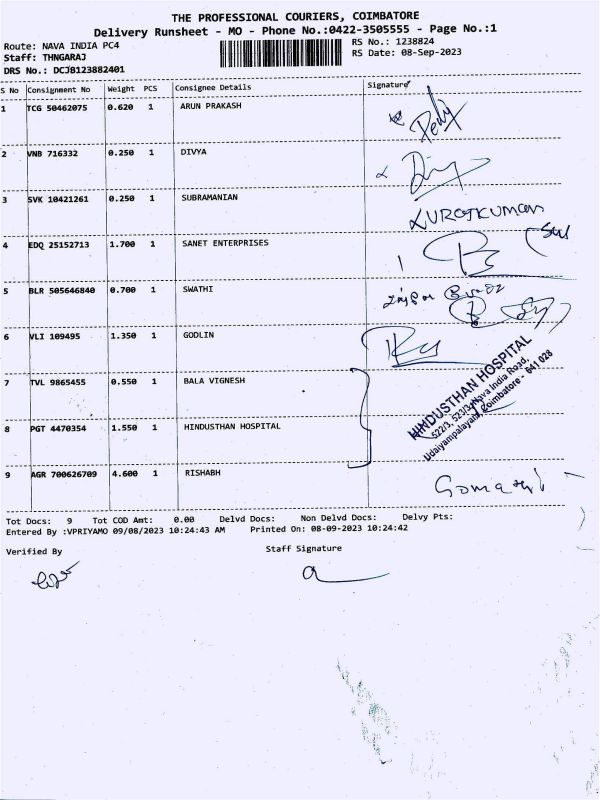 THE PROFESSIONAL COURIERS, COIMBATORE
Delivery Runsheet - MO - Phone No.:0422-3505555 - Page No.:1
Route: NAVA INDIA PC4 RS No.: 1238824
Staff: THNGARAJ RS Date: 08-Sep-2023
DRS No.: DCJB123882401
S No Consignment No Weight PCS Consignee Details Signature
1 TCG 50462075 0.620 1 ARUN PRAKASH
2 VNB 716332 0.250 1 DIVYA
3 SVK 10421261 0.250 1 SUBRAMANIAN
4 EDQ 25152713 1.700 1 SANET ENTERPRISES
5 BLR 505646840 0.700 1 SWATHI
6 VLI 109495 1.350 1 GODLIN
7 TVL 9865455 0.550 1 BALA VIGNESH
HINDUSTHAN HOSPITAL
522/3, 523/3, Nava India Road,
Udaiyampalayam, Coimbatore - 641 028
8 PGT 4470354 1.550 1 HINDUSTHAN HOSPITAL
9 AGR 700626709 4.600 1 RISHABH
Tot Docs: 9 Tot COD Amt: 0.00 Delvd Docs: Non Delvd Docs: Delvy Pts:
Entered By :VPRIYAMO 09/08/2023 10:24:43 AM Printed On: 08-09-2023 10:24:42
Verified By Staff Signature